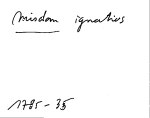 Misdom ignatius
1795-35